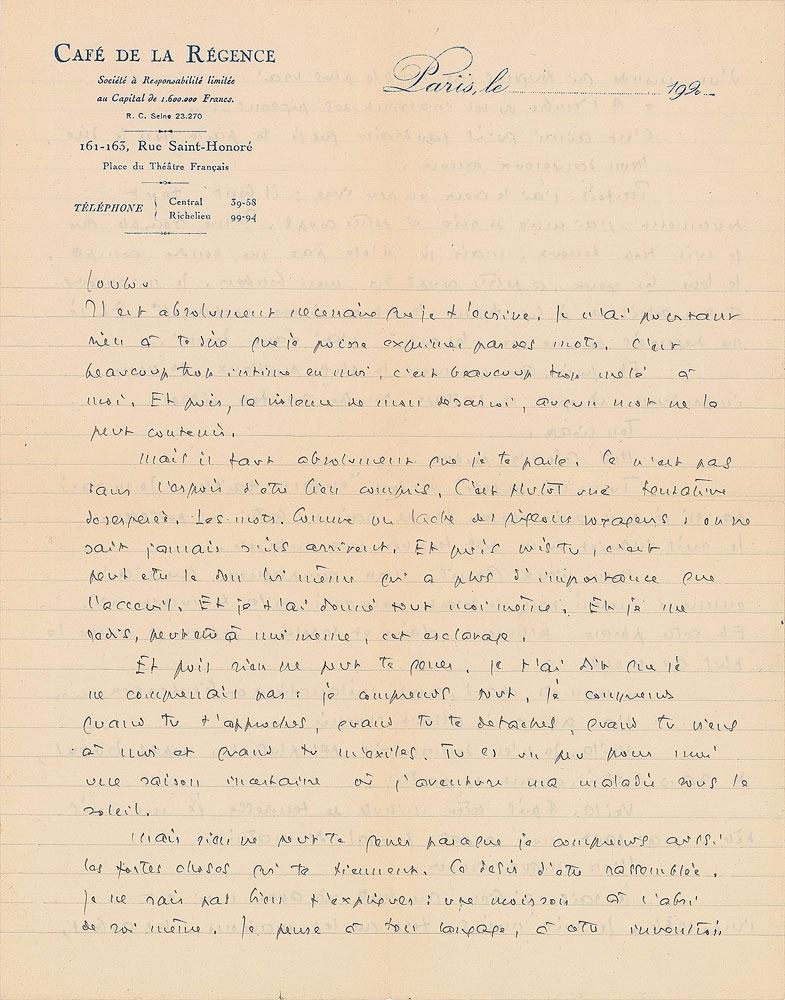 CAFÉ DE LA RÉGENCE
Société à Responsabilité limitée
au Capital de 1.600.000 Francs.
R. C. Seine 23.270
161-163, Rue Saint-Honoré
Place du Théâtre Français
TÉLÉPHONE
Central 39-58
Richelieu 99-94
Paris, le 192
Loulou
Il est absolument necessaire que je t'ecrive. Je n'ai pourtant
rien à te dire que je puisse exprimer par des mots. C'est
beaucoup trop intime en moi, c'est beaucoup trop mêlé à
moi. Et puis, la violence de mon desarroi, aucun mot ne la
peut contenir.
Mais il faut absolument que je te parle. Ce n'est pas
sans l'espoir d'être bien compris. C'est plutot une tentative
desesperée. Les mots. Comme on lache des pigeons voyageurs : on ne
sait jamais s'ils arrivent. Et puis vois tu, c'est
peut etre le don lui même qui a plus d'importance que
l'acceuil. Et je t'ai donné tout moi même. Et je me
redis, peut etre à moi meme, cet esclavage.
Et puis rien ne peut te gener. Je t'ai dit que je
ne comprenais pas : je comprends tout, je comprends
quand tu t'approches, quand tu te detaches, quand tu viens
à moi et quand tu m'exiles. Tu es un peu pour moi
une saison incertaine où j'aventure ma maladie sous le
soleil.
Mais rien ne peut te gener parceque je comprends aussi
les fortes choses qui te tiennent. Ce desir d'etre rassemblée.
Je ne sais pas bien t'expliquer : une moisson à l'abri
de soi même. Je pense à ton langage, à cette invention